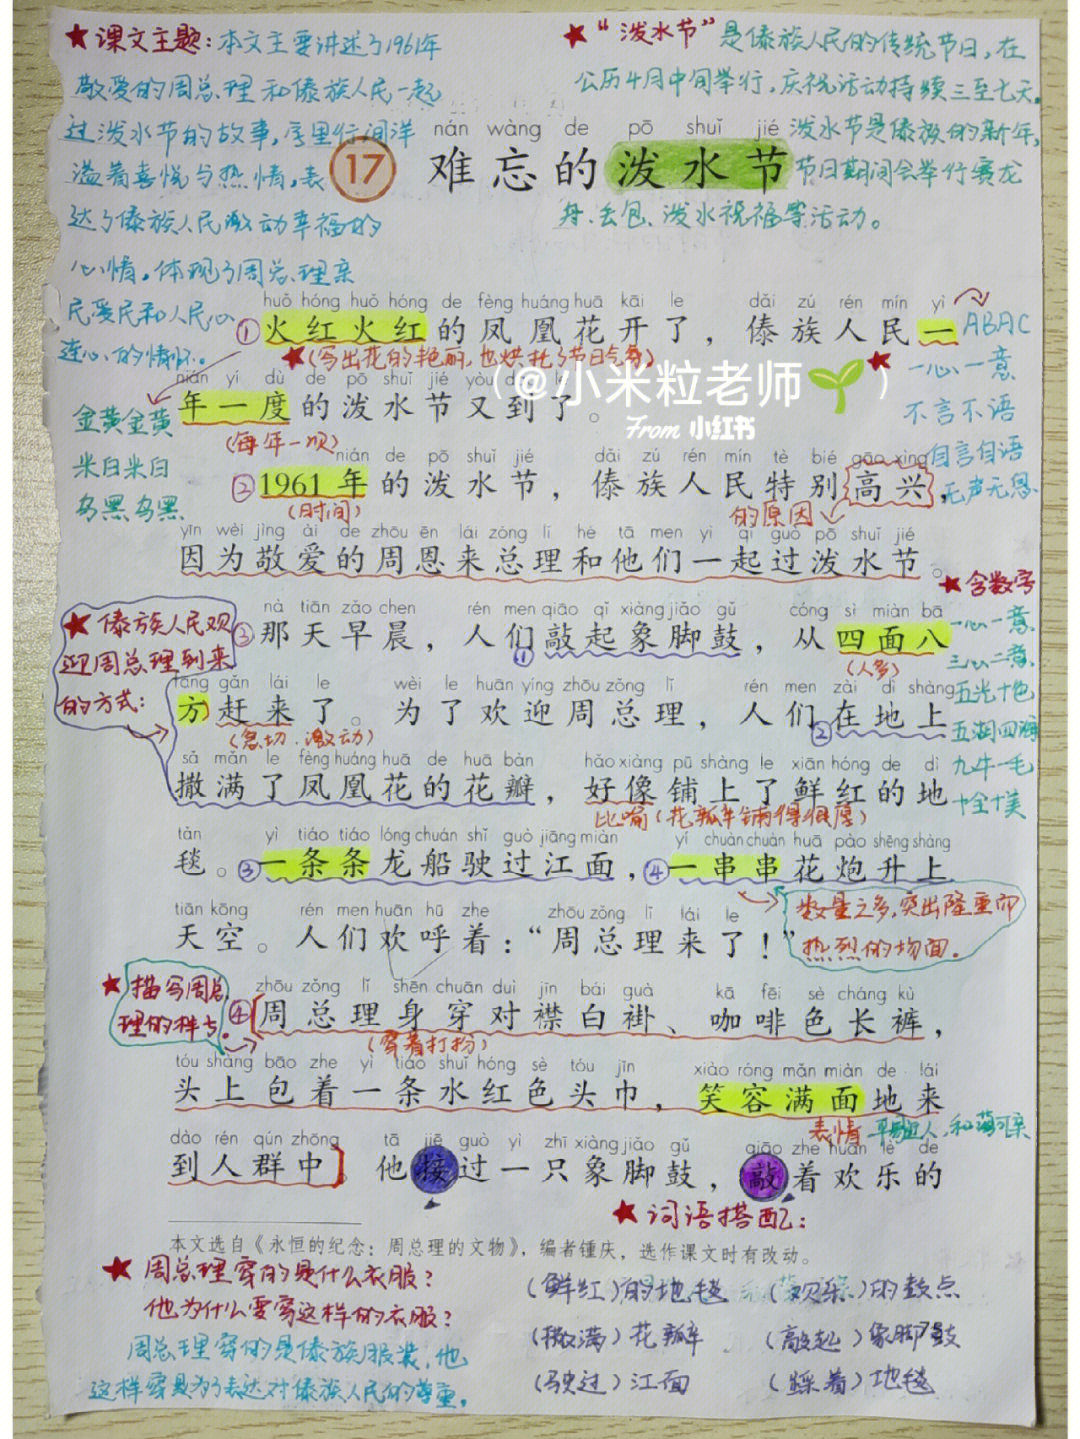 ★课文主题:本文主要讲述了1961年
敬爱的周总理和傣族人民一起
过泼水节的故事,字里行间洋
溢着喜悦与热情,表
达了傣族人民激动幸福的
心情,体现了周总理亲
民爱民和人民心
连心的情怀。
★“泼水节”是傣族人民的传统节日,在
公历4月中间举行,庆祝活动持续三至七天。
泼水节是傣族的新年,
节日期间会举行赛龙
舟、丢包、泼水祝福等活动。
nán wàng de pō shuǐ jié
17 难忘的泼水节
huǒ hóng huǒ hóng de fèng huáng huā kāi le dǎi zú rén mín yì
①火红火红的凤凰花开了,傣族人民一
★(写出花的艳丽,也烘托了节日气氛)
nián yí dù de pō shuǐ jié yòu dào le
年一度的泼水节又到了。
(每年一次)
(@小米粒老师🌱)
From 小红书
金黄金黄
米白米白
乌黑乌黑
ABAC
★一心一意
不言不语
自言自语
无声无息
nián de pō shuǐ jié dǎi zú rén mín tè bié gāo xìng
②1961年的泼水节,傣族人民特别高兴,
(时间)
的原因
yīn wèi jìng ài de zhōu ēn lái zǒng lǐ hé tā men yì qǐ guò pō shuǐ jié
因为敬爱的周恩来总理和他们一起过泼水节。
★含数字
一心一意
三心二意
五光十色
五湖四海
九牛一毛
十全十美
★傣族人民欢
迎周总理到来
的方式:
nà tiān zǎo chen rén men qiāo qǐ xiàng jiǎo gǔ cóng sì miàn bā
③那天早晨,人们①敲起象脚鼓,从四面八
(人多)
fāng gǎn lái le wèi le huān yíng zhōu zǒng lǐ rén men zài dì shàng
方赶来了。为了欢迎周总理,人们②在地上
(急切、激动)
sǎ mǎn le fèng huáng huā de huā bàn hǎo xiàng pū shàng le xiān hóng de dì
撒满了凤凰花的花瓣,好像铺上了鲜红的地
比喻(花瓣铺得很厚)
tǎn yì tiáo tiáo lóng chuán shǐ guò jiāng miàn yí chuàn chuàn huā pào shēng shàng
毯。③一条条龙船驶过江面,④一串串花炮升上
数量之多,突出隆重即
热烈的场面。
tiān kōng rén men huān hū zhe zhōu zǒng lǐ lái le
天空。人们欢呼着:“周总理来了!”
★描写周总
理的样子。
zhōu zǒng lǐ shēn chuān duì jīn bái guà kā fēi sè cháng kù
④周总理身穿对襟白褂、咖啡色长裤,
(穿着打扮)
tóu shàng bāo zhe yì tiáo shuǐ hóng sè tóu jīn xiào róng mǎn miàn de lái
头上包着一条水红色头巾,笑容满面地来
表情 平易近人,和蔼可亲
dào rén qún zhōng tā jiē guò yì zhī xiàng jiǎo gǔ qiāo zhe huān lè de
到人群中。他接过一只象脚鼓,敲着欢乐的
本文选自《永恒的纪念:周总理的文物》,编者锺庆,选作课文时有改动。
★周总理穿的是什么衣服?
他为什么要穿这样的衣服?
周总理穿的是傣族服装,他
这样穿是为了表达对傣族人民的尊重。
★词语搭配:
(鲜红)的地毯 (欢乐)的鼓点
(撒满)花瓣 (敲起)象脚鼓
(驶过)江面 (踩着)地毯